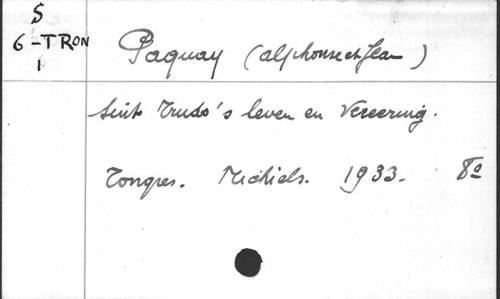 S
6-TRON
1
Paquay (Alphonse et Jean)
Sint Trudo's leven en Vereering.
Tongres. Michiels. 1933. 8º